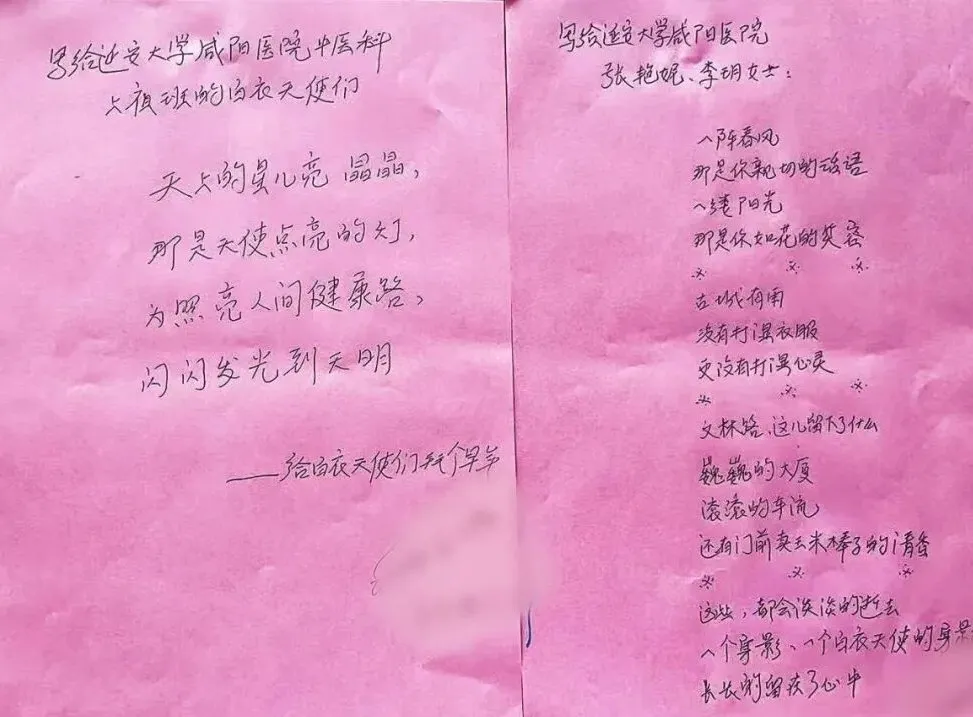 写给延安大学咸阳医院中医科
上夜班的白衣天使们
天上的星儿亮晶晶,
那是天使点亮的灯,
为照亮人间健康路,
闪闪发光到天明
——给白衣天使们拜个早年
写给延安大学咸阳医院
张艳妮、李玥女士:
一阵春风
那是你亲切的话语
一缕阳光
那是你如花的笑容
※ ※ ※
古城有雨
没有打湿衣服
更没有打湿心灵
※ ※ ※
文林路,这儿留下了什么
巍巍的大厦
滚滚的车流
还有门前卖玉米棒子的清香
※ ※ ※
这些,都会淡淡的逝去
一个身影、一个白衣天使的身影
长长的留在了心中